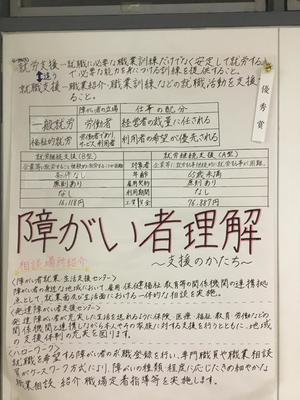 就労支援→就職に必要な職業訓練だけでなく安定して就労する
違う
で必要な能力を身につける訓練を提供すること。
就職支援→職業紹介、職業訓練などの就職活動を支援する
こと。
優秀賞
障がい者の立場 仕事の配分
一般就労 労働者 経営者の裁量に任される
福祉的就労 労働者であり、サービス利用者 利用者の希望が優先される
就労継続支援(B型) 就労継続支援(A型)
対象者
年齢 65歳未満
原則あり 雇用契約 原則あり
なし 利用期間 なし
16,118円 工賃/賃金 76,887円
障がい者理解
~支援のかたち~
相談場所紹介
〈障がい者就業、生活支援センター〉
障がい者の身近な地域において、雇用、保健福祉、教育等の関係機関の連携拠
点として、就業面及び生活面における一体的な相談を実施。
〈発達障がい者支援センター〉
発達障がい者が充実した生活を送れるように保健、医療、福祉、教育、労働などの
関係機関と連携しながら本人やその家族に対する支援を行うとともに、地域
の支援体制の充実を図ります。
〈ハローワーク〉
就職を希望する障がい者の求職登録を行い、専門職員や職業相談
員がケースワーク方式により、障がいの種類、程度に応じたきめ細やかな
職業相談、紹介、職場定着指導等を実施します。